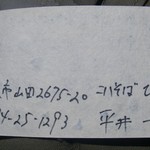 市山田2675-20 コバそば
4-25-1293 平井 一